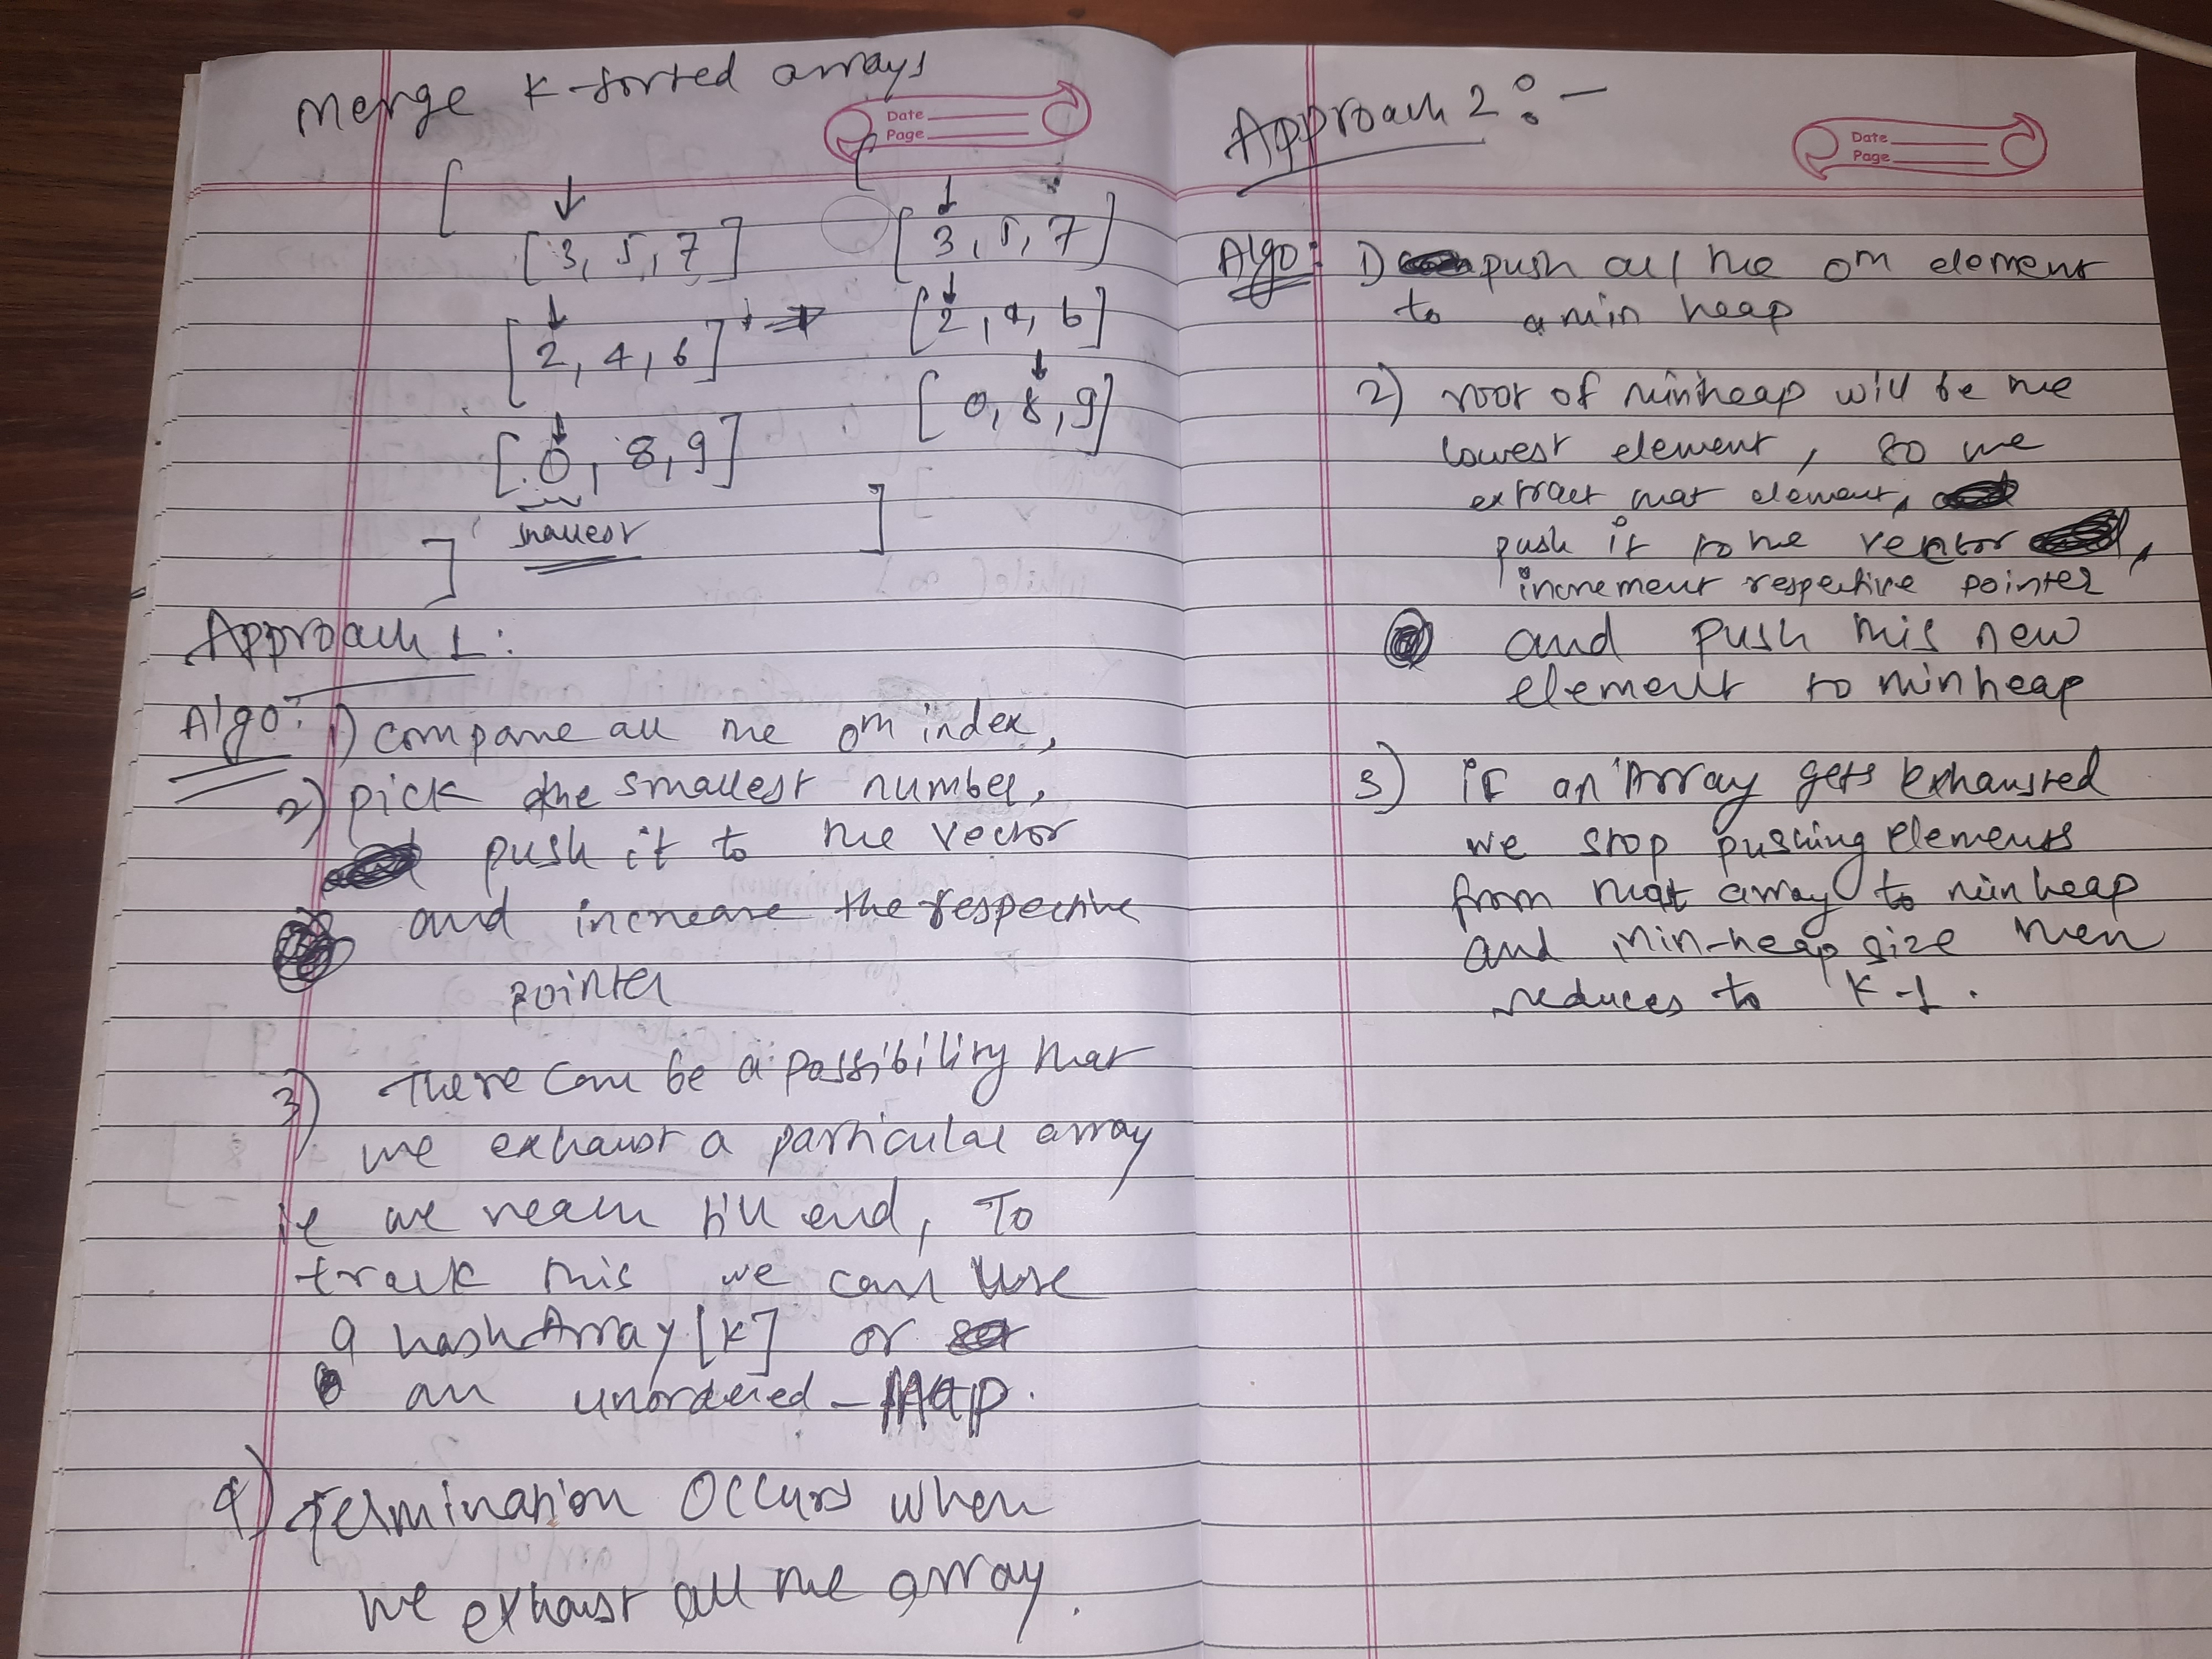 Merge K-sorted arrays
Date
Page
[
[3, 5, 7]
[2, 4, 6]
[0, 8, 9]
smallest
]
⇒
[
[3, 5, 7]
[2, 4, 6]
[0, 8, 9]
]
Approach 1:
Algo: 1) compare all the 0th index,
2) pick the smallest number,
push it to the vector
and increase the respective
pointer
3) There can be a possibility that
we exhaust a particular array
ie we reach till end, To
track this we can use
a hashArray[K] or
an unordered_Map.
4) Termination Occurs when
we exhaust all the array.
Approach 2:-
Date
Page
Algo: 1) push all the 0th element
to a min heap
2) root of minheap will be the
lowest element, so we
extract that element,
push it to the vector,
increment respective pointer
and push this new
element to minheap
3) if an Array gets exhausted
we stop pushing elements
from that array to minheap
and min-heap size then
reduces to K-1.